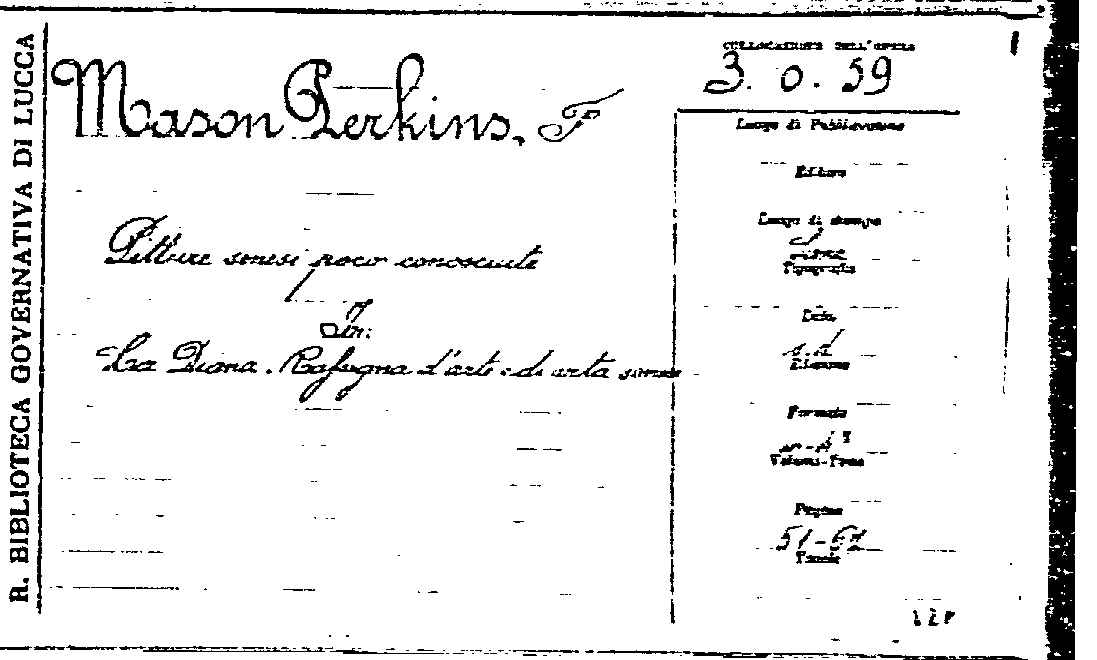 R. BIBLIOTECA GOVERNATIVA DI LUCCA
COLLOCAZIONE DELL'OPERA
3. 0. 59
Mason Perkins, F
Luogo di Pubblicazione
Editore
Pitture senesi poco conosciute
In:
La Diana. Rassegna d'arte e di vita senese
Luogo di stampa
Siena
Tipografia
Data
s.d
Edizione
Formato
in-4°
Volumi-Tomo
Pagine
51-61
Tavole